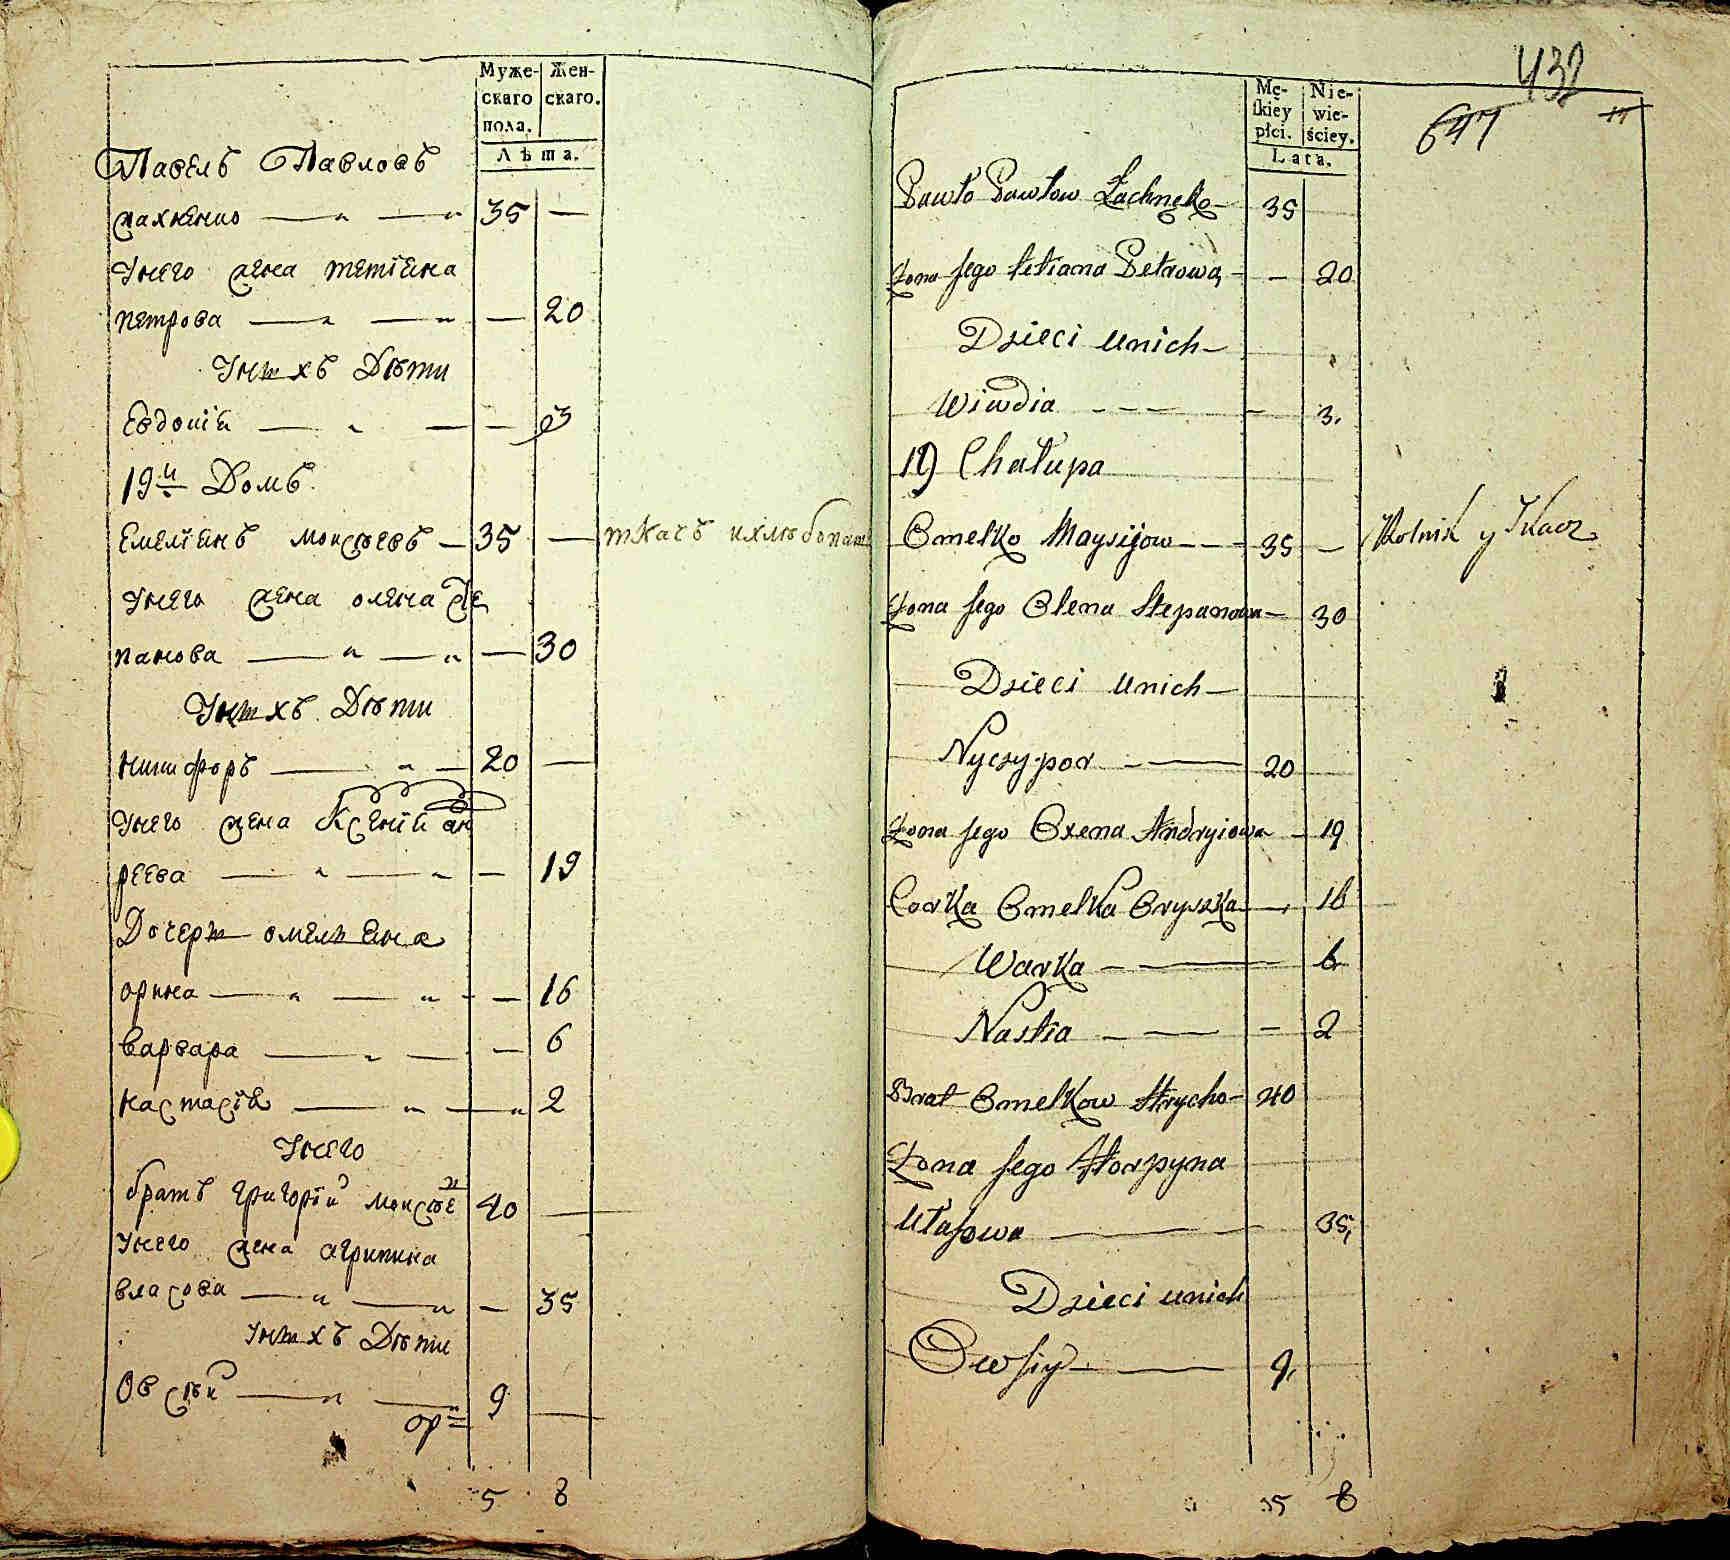 Муже-
скаго
пола.
Жен-
скаго.
Лѣта.
Павелъ Павловъ
Лахненко — „ — „ 35 —
Унего жена тетіѧна
петрова — „ — „ — 20
Унихъ Дѣти
Евдокіѧ — „ — — 3
19й Домъ
Емеліѧнъ моисѣевъ — 35 — ткачъ ихлѣбопаш
Унего жена олена Сте
панова — „ — „ — 30
Унихъ Дѣти
Никифоръ — „ — 20 —
Унего жена Ксеніѧ ан
реева — „ — „ — 19
Дочери омелѧна
орина — „ — „ — 16
варвара — „ — — 6
настасіѧ — „ — „ 2
Унего
братъ григорій моисѣе 40 —
Унего жена агрипина
власова — „ — „ — 35
Унихъ Дѣти
Овсѣй — „ — „ 9 —
ор=
5 8
432
647
Mę-
ſkiey
płci.
Nie-
wie-
ściey.
Lata.
Pawło Pawłow Łachnęko — 35
Żona Jego tetiana Petrowa — — 20
Dzieci unich —
Wiwdia - - - - 3.
19) Chałupa
Omelko Maysijow - - - 35 — Rolnik y Tkacz
Żona Jego Olena Stepanowa — 30
Dzieci unich —
Nyczypor - — 20
Żona Jego Oxena Andryiowa — 19
Corka Omelka Oryszka — 16
Warka - — 6
Nastia - — - 2
Brat Omelkow Hrycho — 40
Żona Jego Horpyna
Ułasowa — 35,
Dzieci unich
Owsiy — 9,
5 8